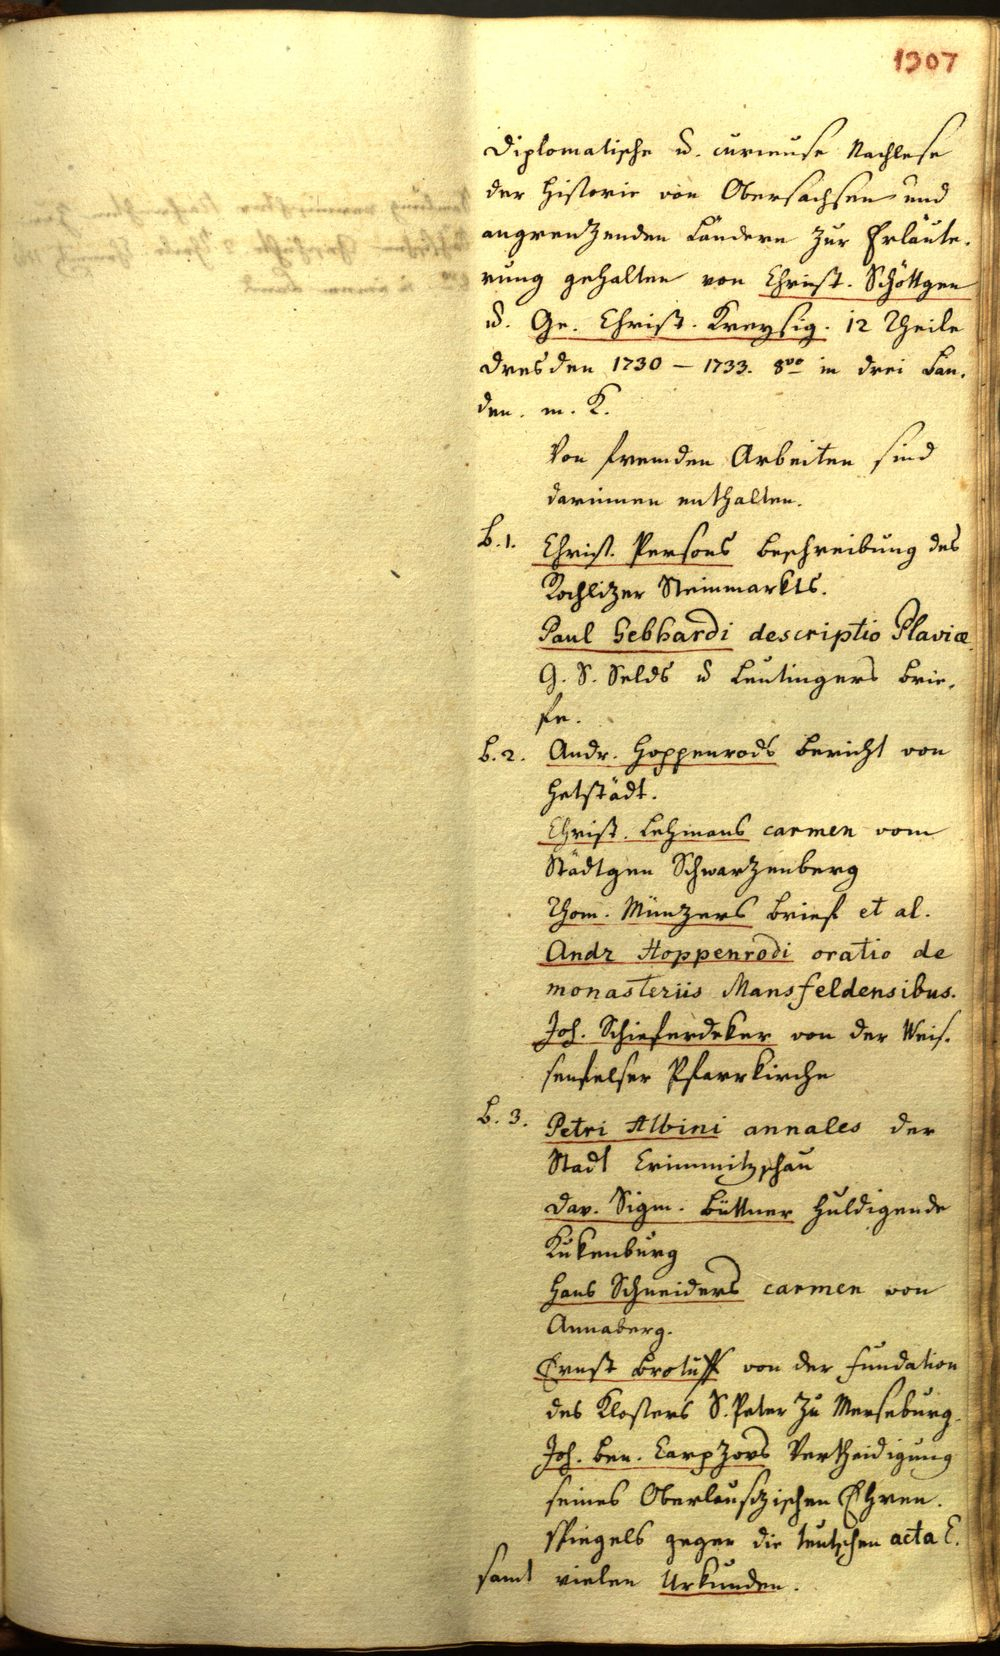 1307
Diplomatische u. curieuse Nachlese
der Historie von Obersachsen und
angrenzenden Ländern zur Erläute-
rung gehalten von Christ. Schöttgen
u. Ge. Christ. Kreysig. 12 Theile
Dresden 1730 – 1733. 8vo in drei Bän-
den. m. K.
Von fremden Arbeiten sind
darinnen enthalten.
B. 1. Christ. Persons Beschreibung des
Rochlizer Steinmarkts.
Paul Gebhardi descriptio Plaviæ
G. S. Selds u Leutingers Brie-
fe.
B. 2. Andr. Hoppenrods Bericht von
Hetstädt.
Christ. Lehmans carmen vom
Städtgen Schwarzenberg
Thom. Münzers Brief et al.
Andr Hoppenrodi oratio de
monasteriis Mansfeldensibus.
Joh. Schieferdeker von der Weis-
senfelser Pfarrkirche
B. 3. Petri Albini annales der
Stadt Crimmitzschau
Dav. Sigm. Büttner huldigende
Kukenburg
Hans Schneiders carmen von
Annaberg.
Ernst Brotuff von der Fundation
des Klosters S. Peter zu Merseburg.
Joh. Ben. Carpzovs Vertheidigung
seines Oberlausizischen Ehren-
spiegels gegen die teutschen acta E.
samt vielen Urkunden.